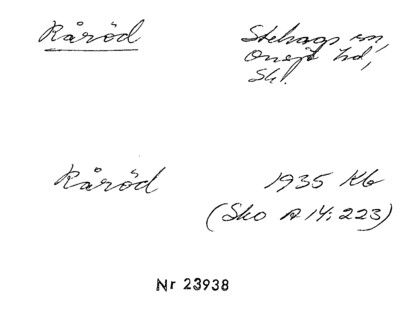 Råröd
Stehags sn,
Onsjö hd,
Sk.
Råröd
1935 Kb
(Sko A 14: 223)
Nr 23938